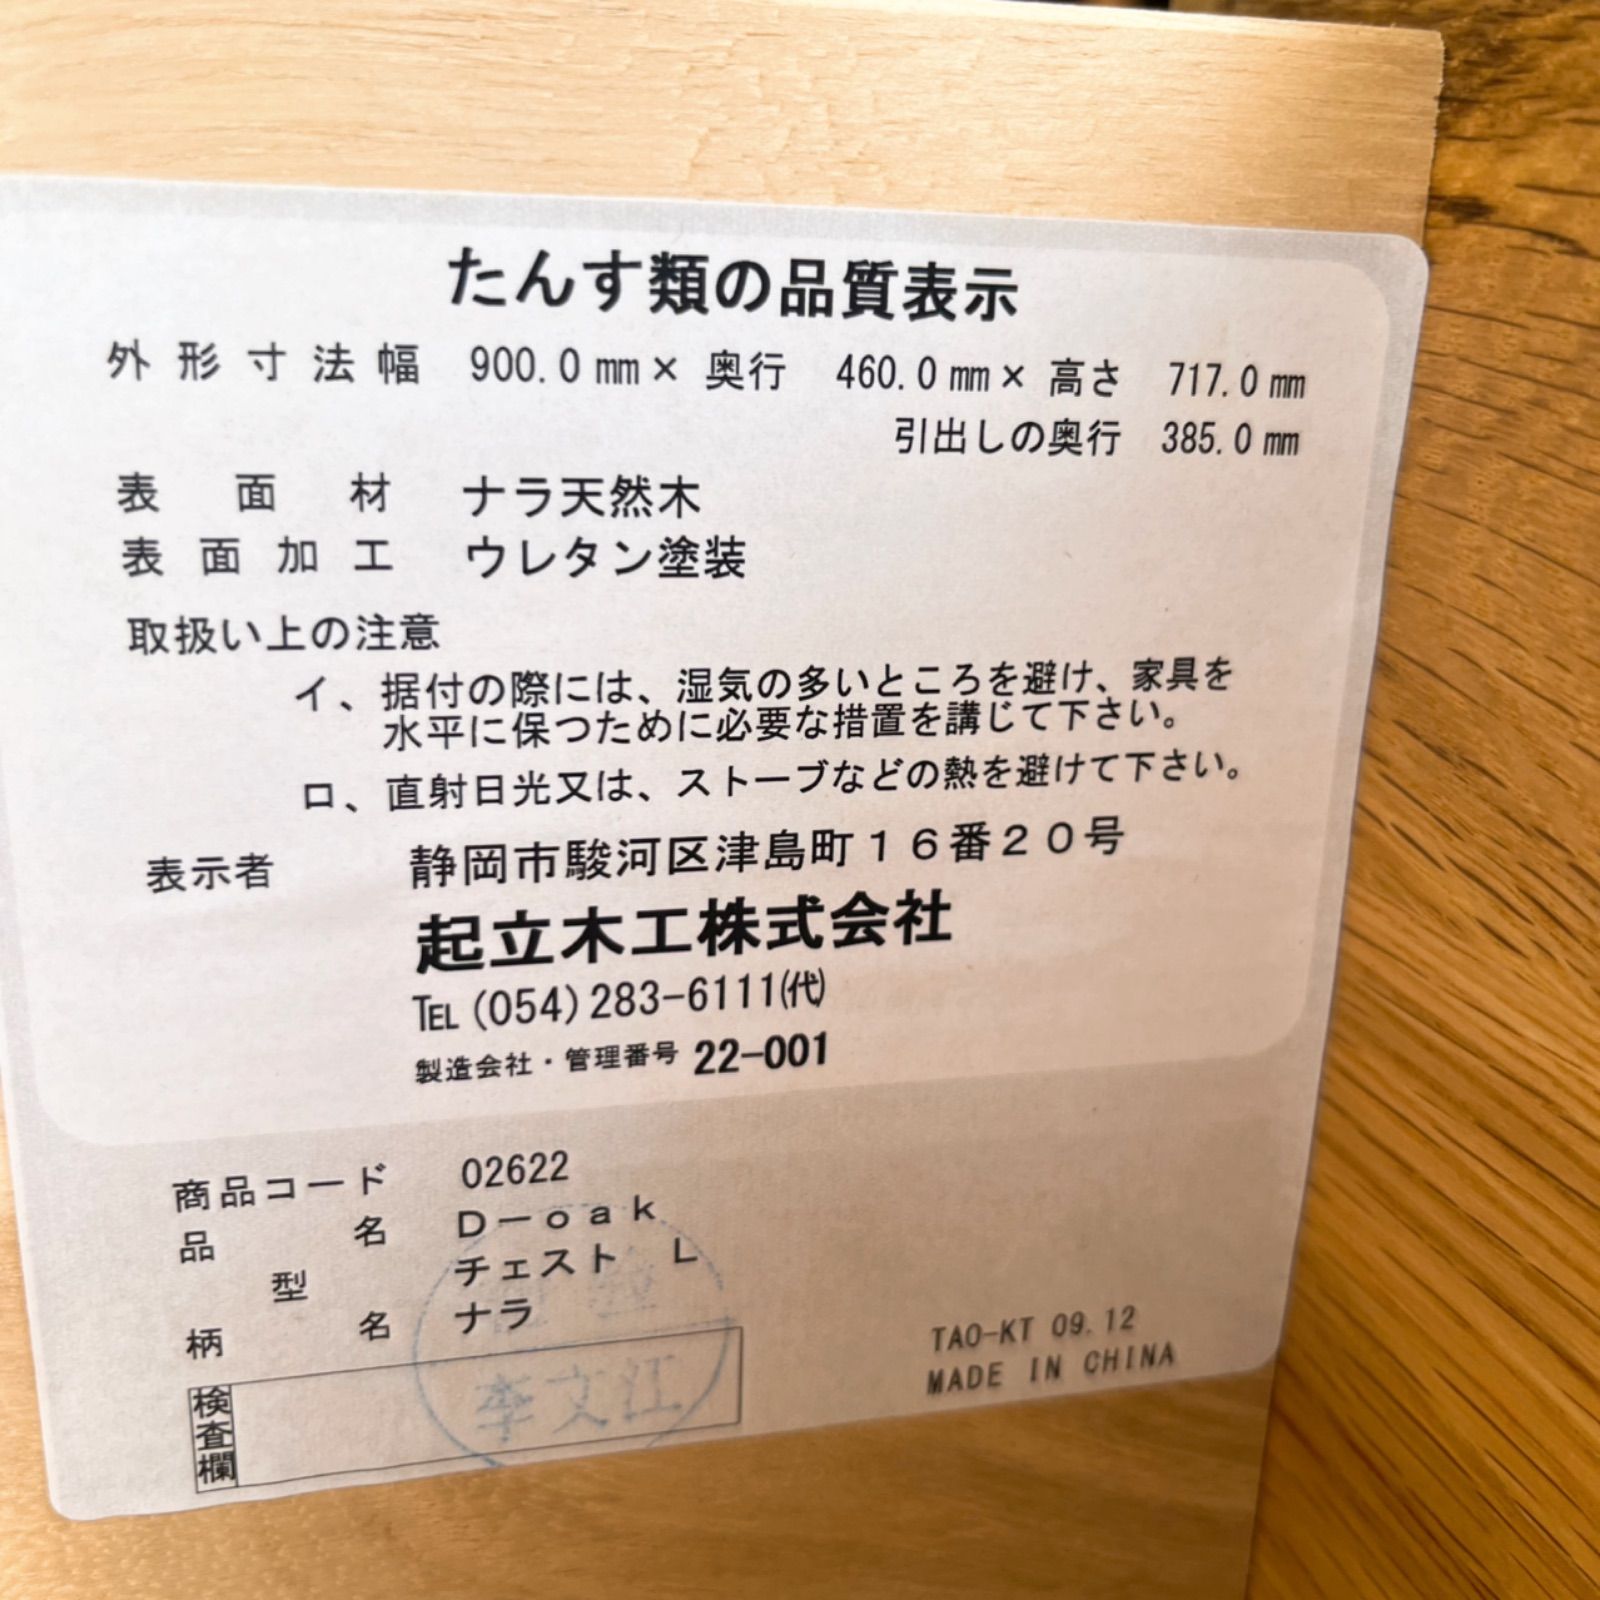 たんす類の品質表示
外形寸法幅 900.0㎜× 奥行 460.0㎜× 高さ 717.0㎜
引出しの奥行 385.0㎜
表面材 ナラ天然木
表面加工 ウレタン塗装
取扱い上の注意
イ、据付の際には、湿気の多いところを避け、家具を
水平に保つために必要な措置を講じて下さい。
ロ、直射日光又は、ストーブなどの熱を避けて下さい。
表示者 静岡市駿河区津島町16番20号
起立木工株式会社
℡(054)283-6111㈹
製造会社・管理番号 22-001
商品コード 02622
品名 D-oak
型 チェスト L
柄名 ナラ
検査欄
李文江
TAO-KT 09.12
MADE IN CHINA